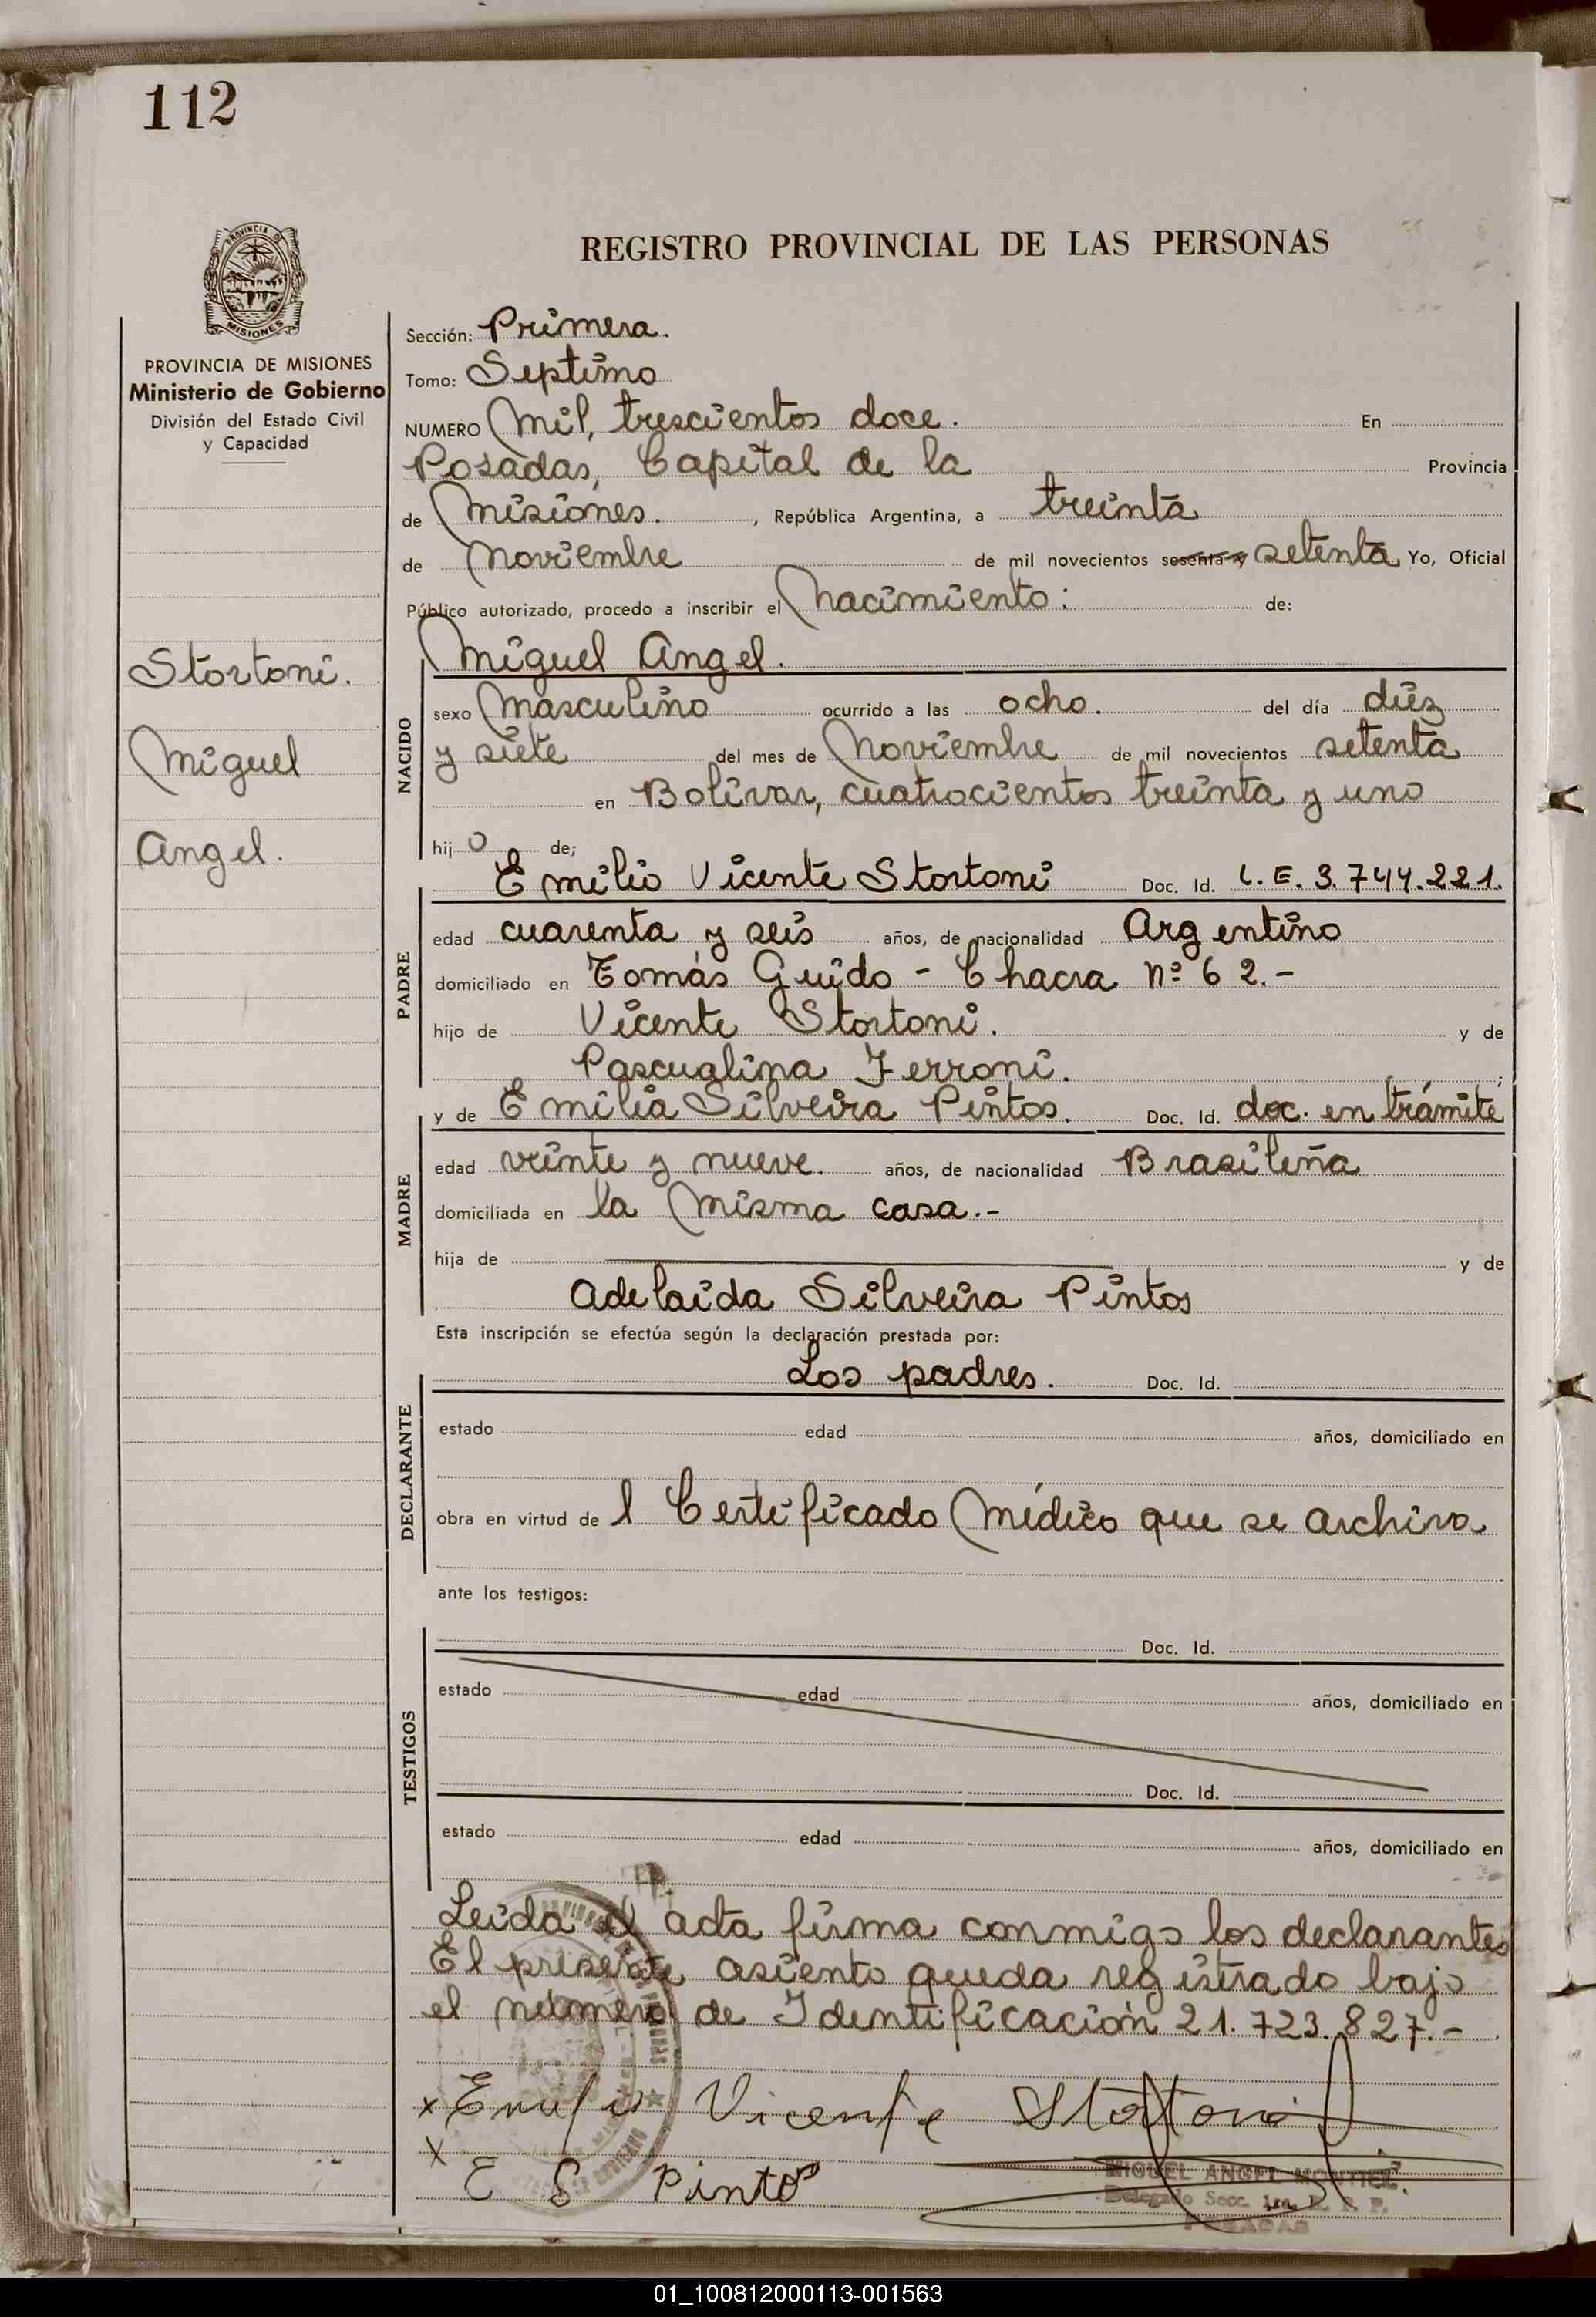 112
PROVINCIA DE
MISIONES
PROVINCIA DE MISIONES
Ministerio de Gobierno
División del Estado Civil
y Capacidad
Stortoni.
Miguel
Angel.
REGISTRO PROVINCIAL DE LAS PERSONAS
Sección: Primera.
Tomo: Septimo
NUMERO Mil, trescientos doce. En
Posadas, Capital de la Provincia
de Misiones. , República Argentina, a treinta
de Noviembre de mil novecientos sesenta y setenta Yo, Oficial
Público autorizado, procedo a inscribir el Nacimiento: de:
Miguel Angel.
NACIDO
sexo Masculino ocurrido a las ocho. del día diez
y siete del mes de Noviembre de mil novecientos setenta
en Bolivar, cuatrocientos treinta y uno
hij o de;
Emilio Vicente Stortoni Doc. Id. L.E. 3.744.221.
PADRE
edad cuarenta y seis años, de nacionalidad Argentino
domiciliado en Tomás Guido - Chacra Nº 62.-
hijo de Vicente Stortoni. y de
Pascualina Ferroni. ;
y de Emilia Silveira Pintos. Doc. Id. doc. en trámite
MADRE
edad veinte y nueve. años, de nacionalidad Brasileña
domiciliada en la misma casa.-
hija de y de
Adelaida Silveira Pintos
Esta inscripción se efectúa según la declaración prestada por:
Los padres. Doc. Id.
DECLARANTE
estado edad años, domiciliado en
obra en virtud de l Certificado Médico que se archiva
ante los testigos:
Doc. Id.
TESTIGOS
estado edad años, domiciliado en
Doc. Id.
estado edad años, domiciliado en
Leida el acta firma conmigo los declarantes
El presente asiento queda registrado bajo
el número de Identificación 21.723.827.-
x Emilio Vicente Stortoni
x E S Pintos
MIGUEL ANGEL MONTIEL
Delegado Secc. 1ra. R. P. P.
POSADAS
01_100812000113-001563